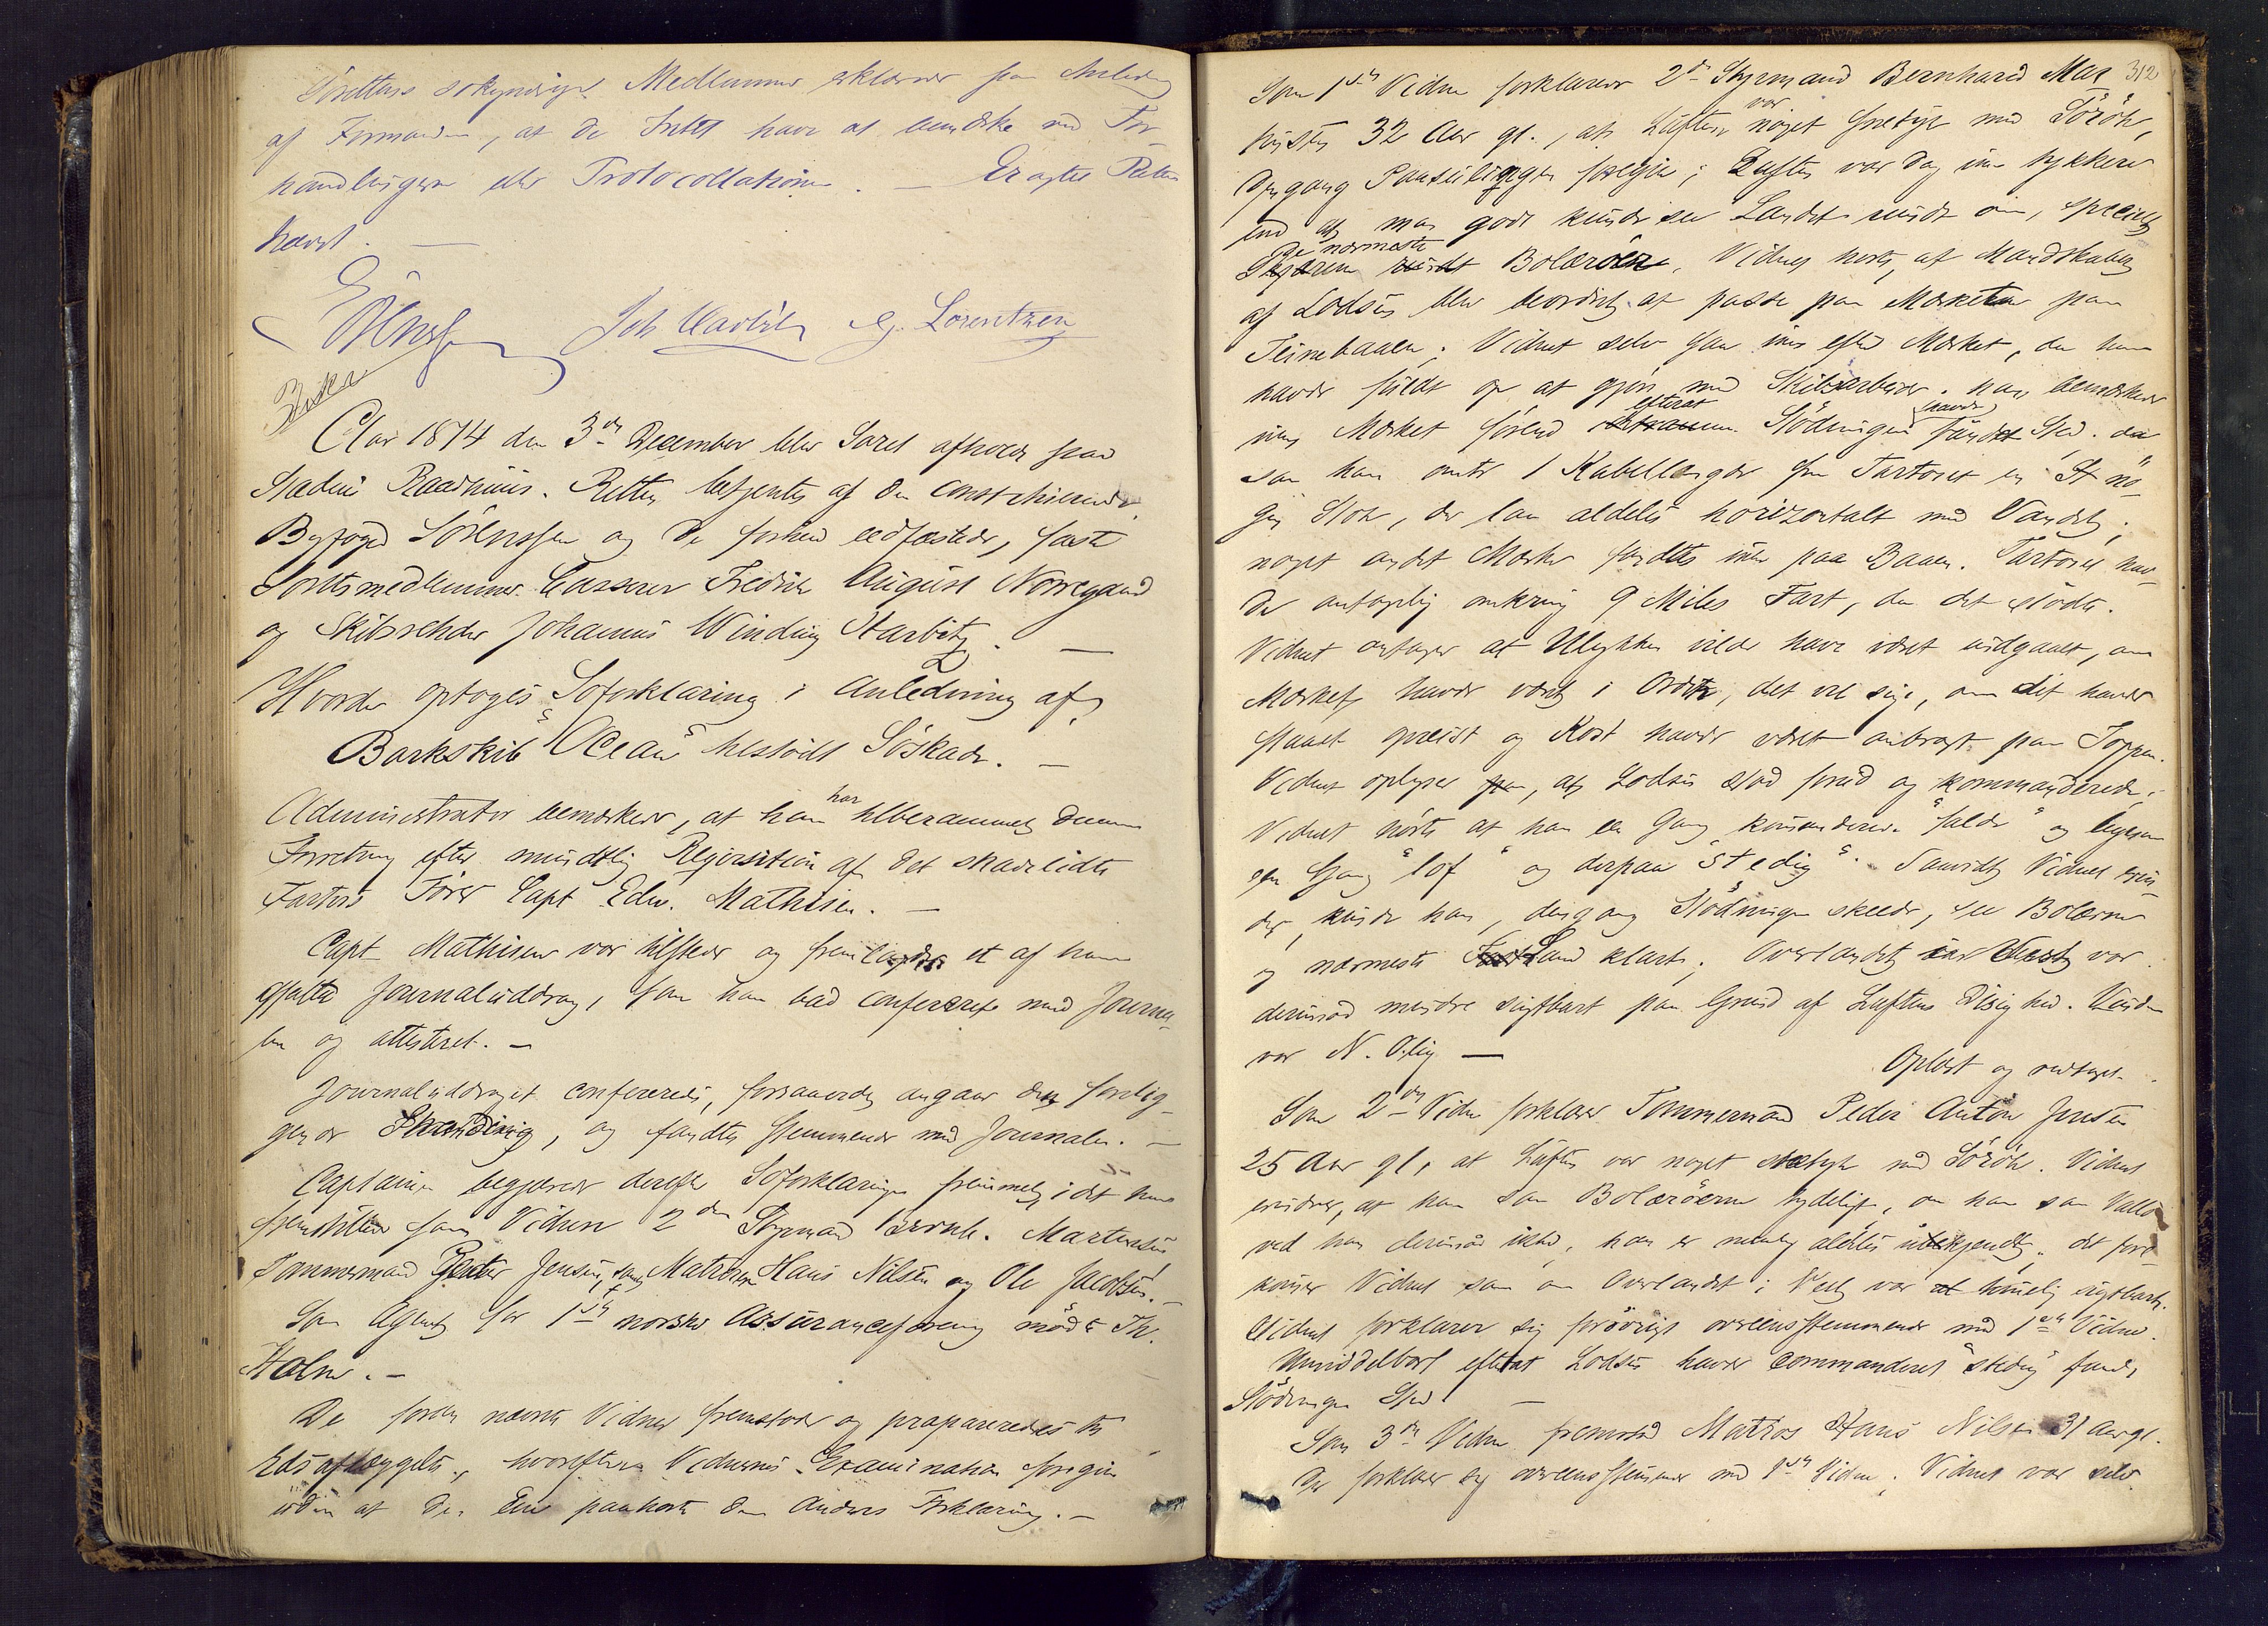 Sørettens søkyndige Medlemmer erklærer paa Anledng
af Formanden, at de Intet have at bemærke ved For
handlingerne eller Protocollationen. — Eragtes Retten
hævet. —
Joh Harbitz G. Lorentzen
Aar 1874 den 3de December blev Søret afholdt paa
Stadens Raadhuus. Retten betjentes af den constituerede
Byfoged Sörenssen og de forhen eedfæstede, faste
Söretsmedlemmer Casserer Fredrik August Norregaard
og Skibsrheder Johannes Winding Harbitz. —
Hvorda optoges Söforklaring i Anledning af
Barkskib "Ocean" tilstödt Söskade. —
Administrator bemærkede, at han har tilberammet denne
Forretning efter mundtlig Reqvisition af det skadelidte
Fartøis Förer Capt Edw. Mathisen. —
Capt Mathisen var tilstede og fremlagde et af ham
forfattet Journaluddrag, som han bad confereret med Journa-
len og attesteret. —
Journaluddraget confereredes, forsaavidt angaar den forelig-
gende Stranding, og fandtes stemmende med Journalen. —
Captainen begjærede derefter Söforklaringen fremmet, idet han
fremstillede som Vidner 2den Styrmand Bernh. Martinsen
Tømmermand Peder Jensen, samt Matroser Hans Nilsen og Ole Jacobsen. —
Som Agent for 1ste norske Assuranceforening mödte Th.
Holm. —
De foran nævnte Vidner fremstod og præpareredes til
Edsaflæggelse, hvorefter Vidnernes Examination foregik
uden at den Ene paahørte den Andens Forklaring. —
312
Som 1ste Vidne forklarer 2den Styrmand Bernhard Mar
32 Aar gl., at Luften var noget med Sörök,
dengang Paaseilingen foregik; Luften var dog ikke tykkere
end at man godt kunde see Landet rundt om, specielt
De nærmeste
Bolæröerne. Vidnet hørte, at Mandskabet
af Lodsen blev beordret at passe paa Mærket paa
Teinebaaen. Vidnet selv saa ikke efter Mærket, da han
havde fuldt op at gjøre med Skibsarbeide. han bemærkede
efterat havde
ikke Mærket förend Stödningen fundet Sted. da
saa han omtr 1 Kabellængde fra Fartoiet en nö-
gen Stok, der laa aldeles horizontalt med Vandet;
noget andet Mærke fandtes ikke paa Baaen. Fartoiet hav-
de antagelig omkring 9 Miles Fart, da det stödte.
Vidnet antager at Ulykken vilde have været undgaaet, om
Mærket havde været i Orden, det vil sige, om det havde
staaet opreist og Kost havde været anbragt paa Toppen.
Vidnet oplyser, at Lodsen stod forud og kommanderede;
Vidnet hörte at han en Gang kommanderede "falde" og ligesaa
en Gang "lof" og derpaa "stedig". Saavidt Vidnet erin-
drer, kunde han, dengang Stödningen skeede, see Bolærne
og nærmeste Land klart; Overlandet i Vest var
derimod mindre sigtbart paa Grund af Luftens Disighed. Vinden
var N. Olig —
Oplæst og vedtaget.
Som 2det Vidne forklarer Tømmermand Peder Anton Jensen
25 Aar gl, at Luften var noget med Sörök. Vidnet
erindrer, at han saa Bolæröerne tydeligt, om han saa Vallö
ved han derimod ikke, han er nemlig aldeles ubekjendt; det fore
kommer Vidnet som om Overlandet i Vest var temmelig sigtbart.
Vidnet forklarer sig forövrigt overeensstemmende med 1ste Vidne.
Umiddelbart efterat Lodsen havde commanderet "stedig" fandt
Stödningen Sted —
Som 3die Vidne fremstod Matros Hans Nilsen 31 Aar gl.
Der forklarer sig overeensstemmende med 1ste Vidne. Vidnet var selv